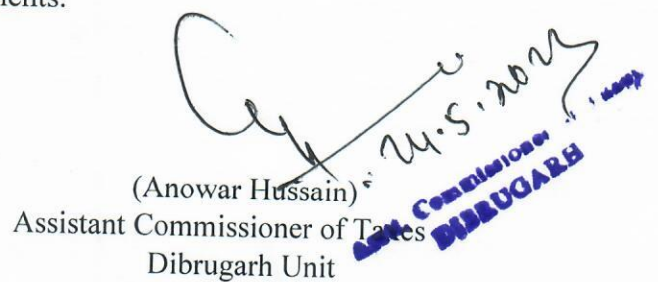 ments.
24.5.2023
(Anowar Hussain)
Assistant Commissioner of Taxes
Dibrugarh Unit
Asstt. Commissioner
DIBRUGARH